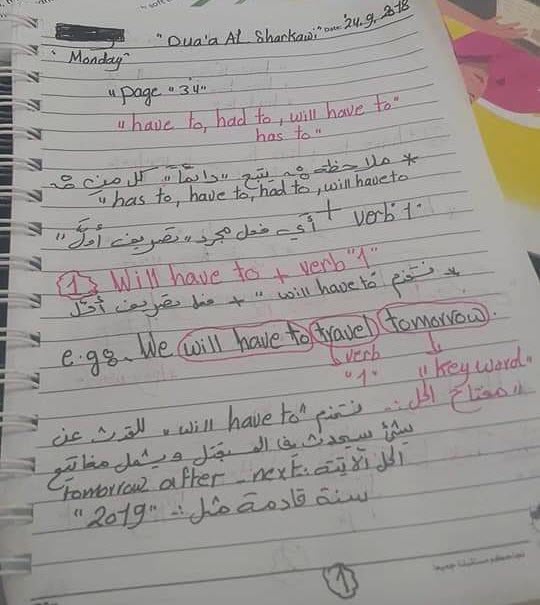 "Dua'a Al Sharkawi" Date: 24.9.2018
Monday"
"page "34"
"have to, had to, will have to"
has to"
* ملاحظة هـ يتبع "دائماً" كل من هـ
"has to, have to, had to, will have to
+ أي فعل مجرد "تصريف أول" verb 1.
① Will have to + verb "1"
* نستخدم "will have to" + فعل تصريف أول
e.g. We will have to travel tomorrow.
verb "Key word"
"1"
"مفتاح الحل" نستخدم "will have to" للتحدث عن
شيء سيحدث في المستقبل ويشمل مفاتيح
الحل الآتية: tomorrow after - next
سنة قادمة مثل: "2019"
①